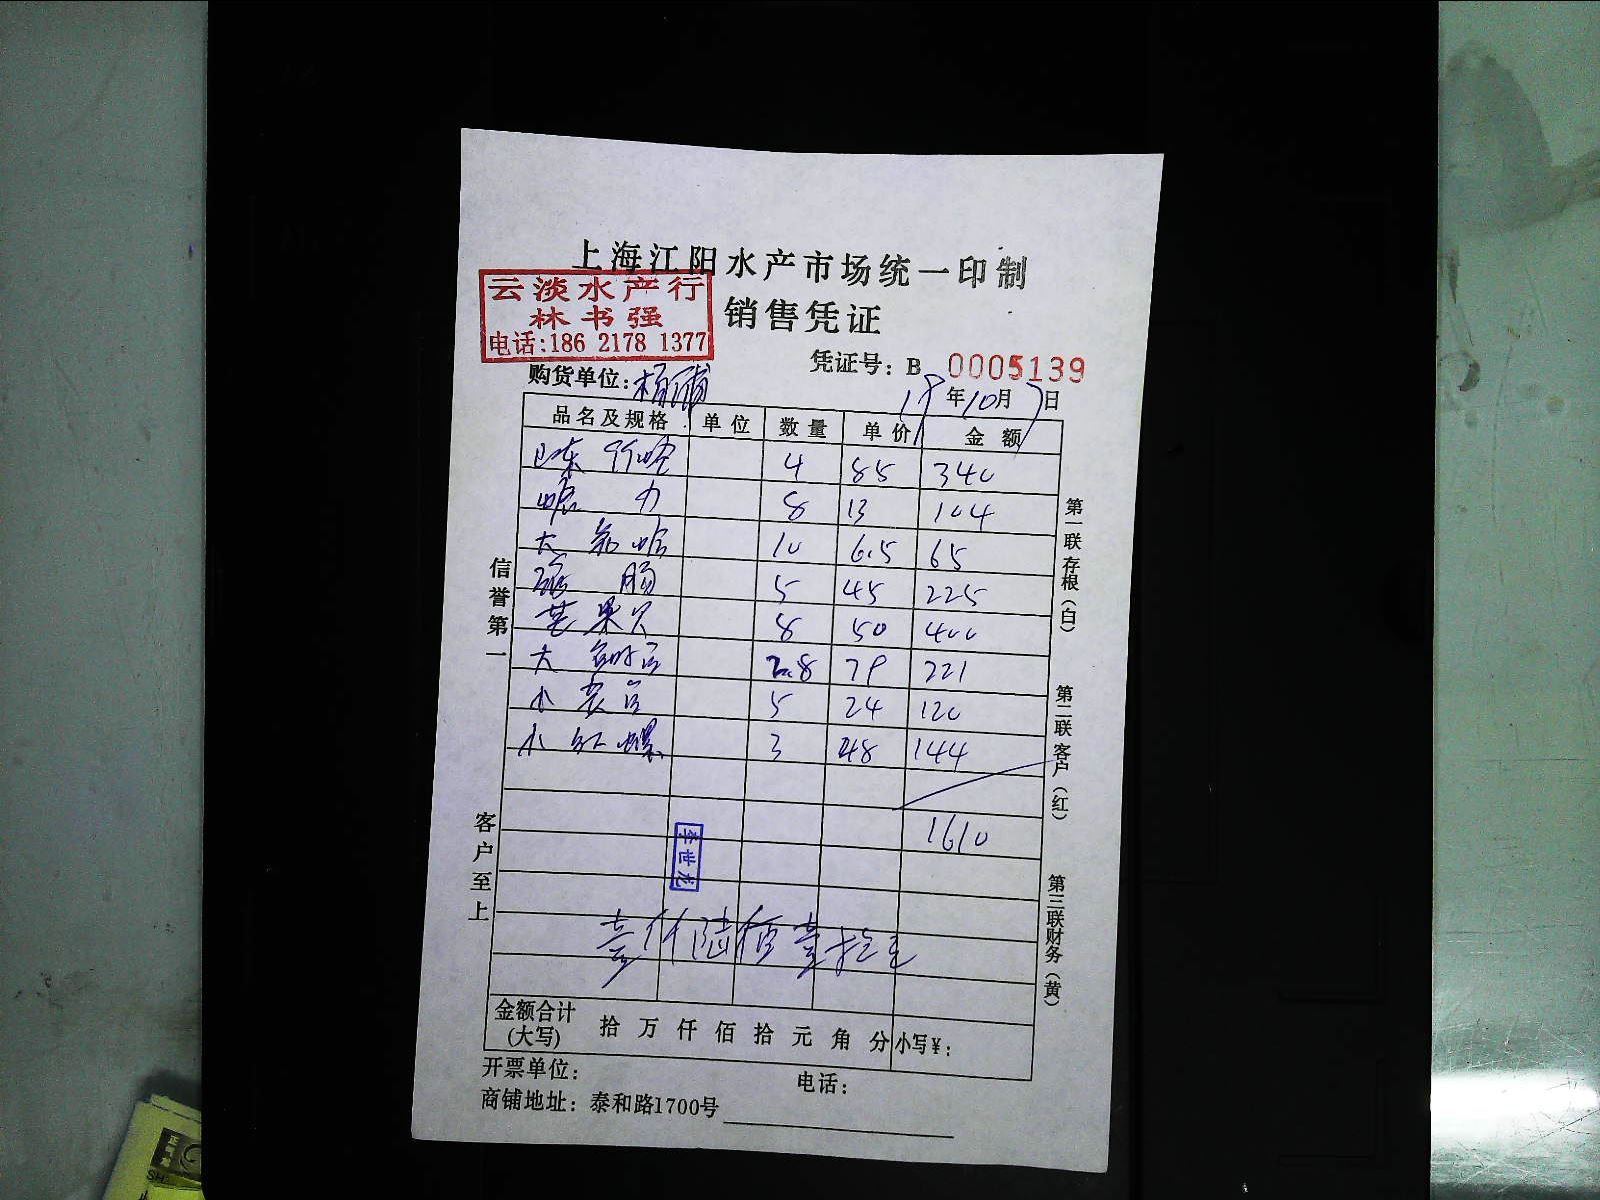 上海江阳水产市场统一印制
云淡水产行
林书强
电话:186 2178 1377
销售凭证
凭证号: B 0005139
购货单位:杨浦
年10月7日
品名及规格 单位 数量 单价 金额
4 85 340
8 13 104
大 10 6.5 65
5 45 225
芒果贝 8 50 400
大 2.8 79 221
小 5 24 120
小红螺 3 48 144
1610
李世龙
壹仟陆佰壹拾元
金额合计
(大写) 拾 万 仟 佰 拾 元 角 分 小写¥:
开票单位: 电话:
商铺地址: 泰和路1700号
信誉第一
客户至上
第一联存根(白)
第二联客户(红)
第三联财务(黄)